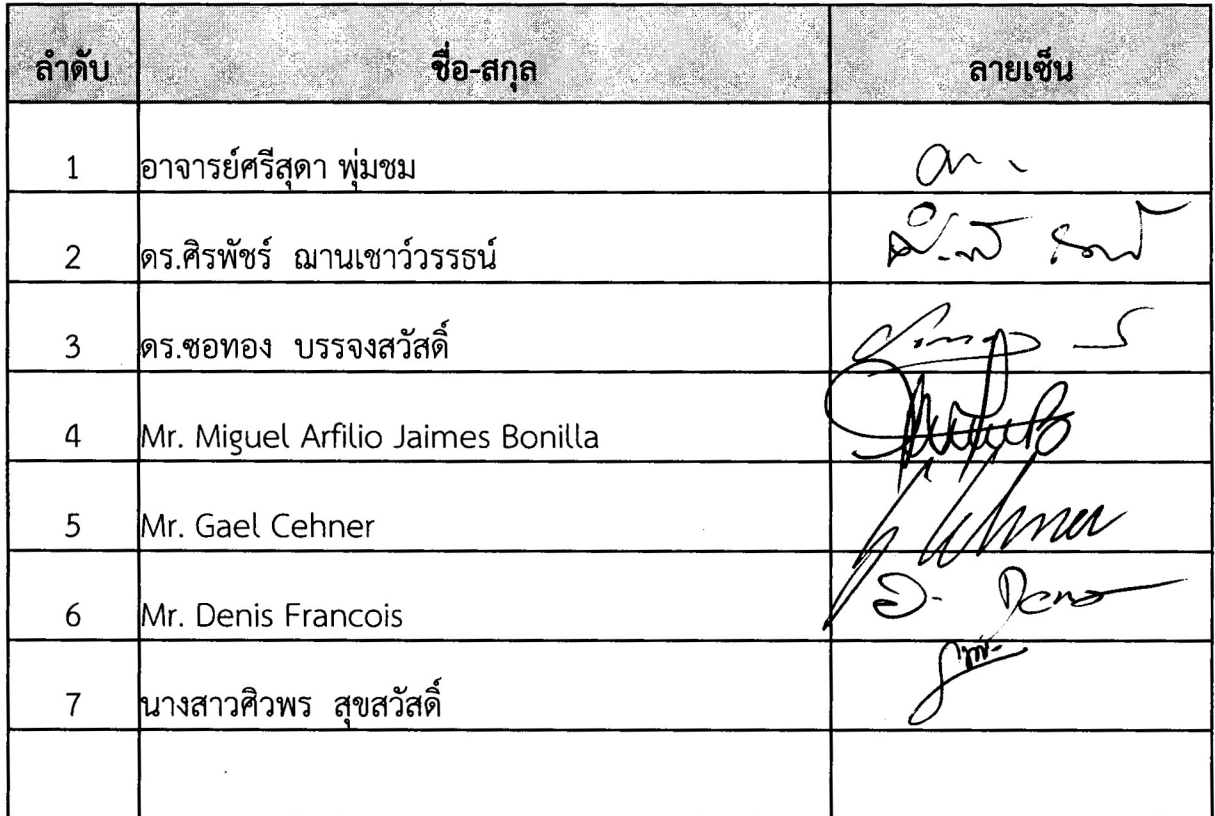 ลำดับ ชื่อ-สกุล ลายเซ็น
1 อาจารย์ศรีสุดา พุ่มชม
2 ดร.ศิรพัชร์ ฌานเชาว์วรรธน์
3 ดร.ซอทอง บรรจงสวัสดิ์
4 Mr. Miguel Arfilio Jaimes Bonilla
5 Mr. Gael Cehner
6 Mr. Denis Francois
7 นางสาวศิวพร สุขสวัสดิ์